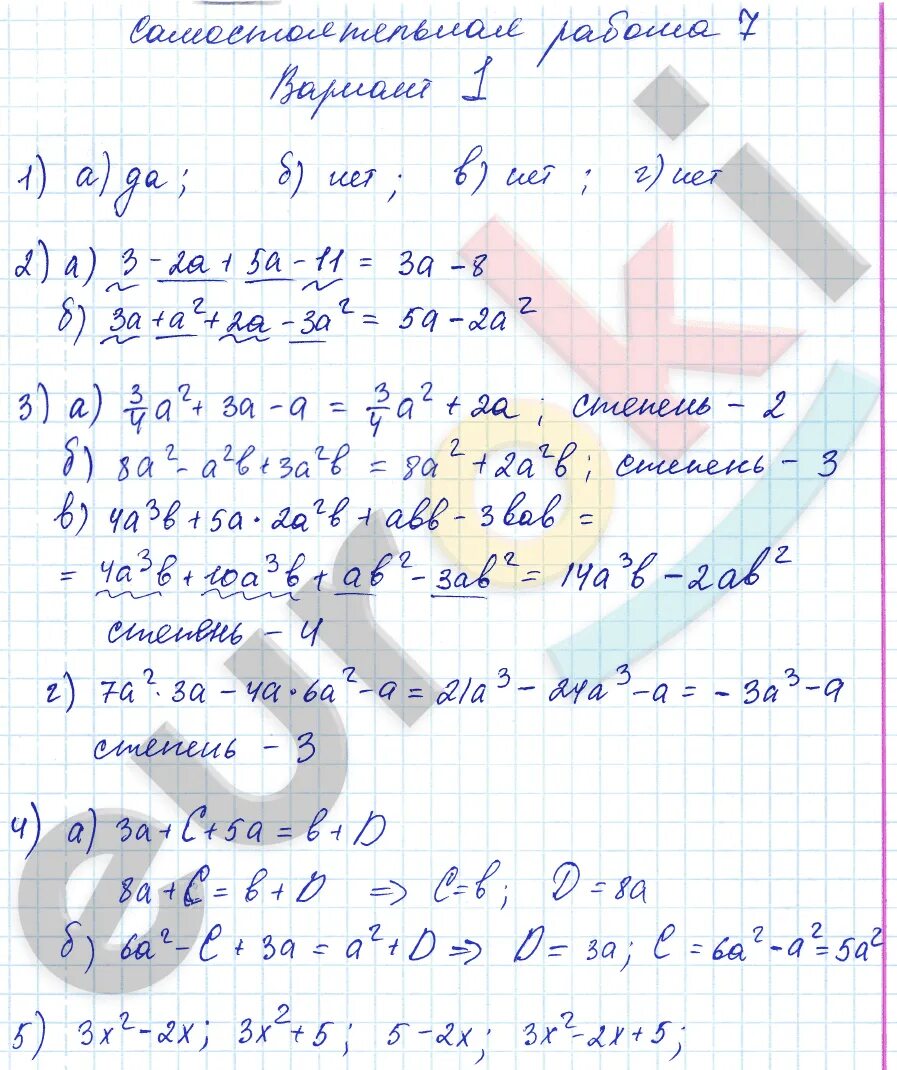 Самостоятельная работа 7
Вариант 1
1) а) да; б) нет; в) нет; г) нет
2) а) 3 - 2a + 5a - 11 = 3a - 8
б) 3a + a² + 2a - 3a² = 5a - 2a²
3) а) 3/4 a² + 3a - a = 3/4 a² + 2a; степень - 2
б) 8a² - a²b + 3a²b = 8a² + 2a²b; степень - 3
в) 4a³b + 5a · 2a²b + abb - 3bab =
= 4a³b + 10a³b + ab² - 3ab² = 14a³b - 2ab²
степень - 4
г) 7a² · 3a - 4a · 6a² - a = 21a³ - 24a³ - a = - 3a³ - a
степень - 3
4) а) 3a + C + 5a = b + D
8a + C = b + D ⇒ C = b; D = 8a
б) 6a² - C + 3a = a² + D ⇒ D = 3a; C = 6a² - a² = 5a²
5) 3x² - 2x; 3x² + 5; 5 - 2x; 3x² - 2x + 5;
euroki